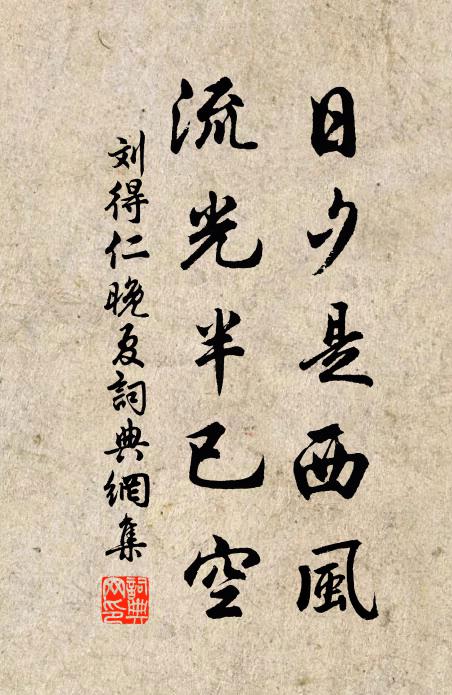 日夕是西風
流光半已空
刘得仁晚夏詞典網集
詞典
网印